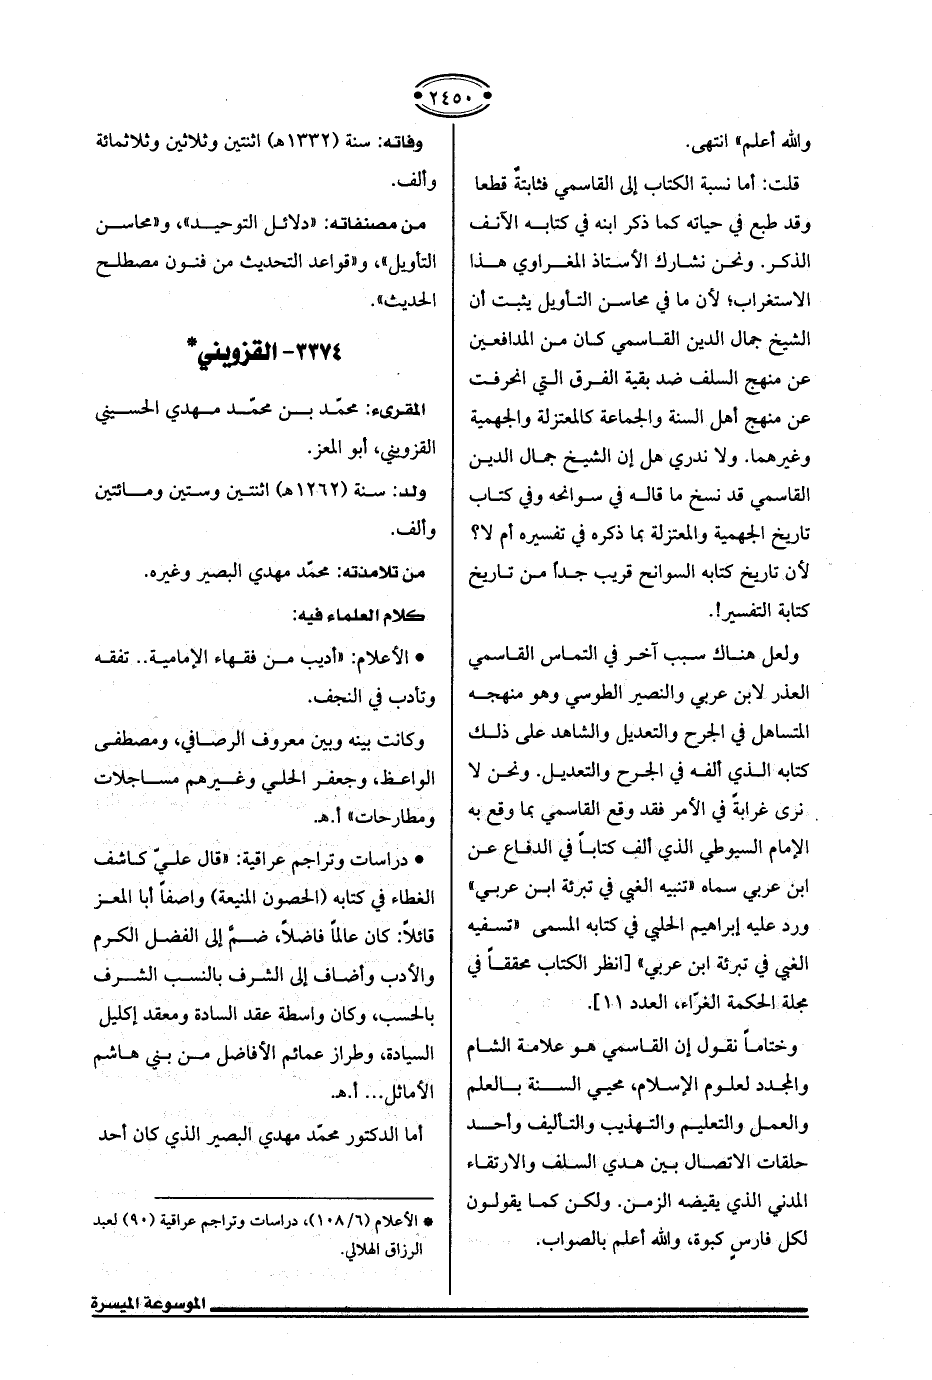 ٢٤٥٠
والله أعلم» انتهى.
قلت: أما نسبة الكتاب إلى القاسمي فثابتةٌ قطعا
وقد طبع في حياته كما ذكر ابنه في كتابه الآنف
الذكر. ونحن نشارك الأستاذ المغراوي هذا
الاستغراب؛ لأن ما في محاسن التأويل يثبت أن
الشيخ جمال الدين القاسمي كان من المدافعين
عن منهج السلف ضد بقية الفرق التي انحرفت
عن منهج أهل السنة والجماعة كالمعتزلة والجهمية
وغيرهما. ولا ندري هل إن الشيخ جمال الدين
القاسمي قد نسخ ما قاله في سوانحه وفي كتاب
تاريخ الجهمية والمعتزلة بما ذكره في تفسيره أم لا؟
لأن تاريخ كتابه السوانح قريب جداً من تاريخ
كتابة التفسير!.
ولعل هناك سبب آخر في التماس القاسمي
العذر لابن عربي والنصير الطوسي وهو منهجه
المتساهل في الجرح والتعديل والشاهد على ذلك
كتابه الذي ألفه في الجرح والتعديل. ونحن لا
نرى غرابةً في الأمر فقد وقع القاسمي بما وقع به
الإمام السيوطي الذي ألف كتاباً في الدفاع عن
ابن عربي سماه «تنبيه الغبي في تبرئة ابن عربي»
ورد عليه إبراهيم الحلبي في كتابه المسمى «تسفيه
الغبي في تبرئة ابن عربي» [انظر الكتاب محققاً في
مجلة الحكمة الغرّاء، العدد ١١].
وختاماً نقول إن القاسمي هو علامة الشام
والمجدد لعلوم الإسلام، محيي السنة بالعلم
والعمل والتعليم والتهذيب والتأليف وأحد
حلقات الاتصال بين هدي السلف والارتقاء
المدني الذي يقيضه الزمن. ولكن كما يقولون
لكل فارسٍ كبوة، والله أعلم بالصواب.
وفاته: سنة (١٣٣٢هـ) اثنتين وثلاثين وثلاثمائة
وألف.
من مصنفاته: «دلائل التوحيد»، و«محاسن
التأويل»، و«قواعد التحديث من فنون مصطلح
الحديث».
٣٣٧٤- القزويني*
المقرىء: محمّد بن محمّد مهدي الحسيني
القزويني، أبو المعز.
ولد: سنة (١٢٦٢هـ) اثنتين وستين ومائتين
وألف.
من تلامذته: محمّد مهدي البصير وغيره.
كلام العلماء فيه:
• الأعلام: «أديب من فقهاء الإمامية.. تفقه
وتأدب في النجف.
وكانت بينه وبين معروف الرصافي، ومصطفى
الواعظ، وجعفر الحلي وغيرهم مساجلات
ومطارحات» أ.هـ.
• دراسات وتراجم عراقية: «قال عليّ كاشف
الغطاء في كتابه (الحصون المنيعة) واصفاً أبا المعز
قائلاً: كان عالماً فاضلاً، ضمَّ إلى الفضل الكرم
والأدب وأضاف إلى الشرف بالنسب الشرف
بالحسب، وكان واسطة عقد السادة ومعقد إكليل
السيادة، وطراز عمائم الأفاضل من بني هاشم
الأماثل... أ.هـ.
أما الدكتور محمّد مهدي البصير الذي كان أحد
* الأعلام (١٠٨/٦)، دراسات وتراجم عراقية (٩٠) لعبد
الرزاق الهلالي.
الموسوعة الميسرة